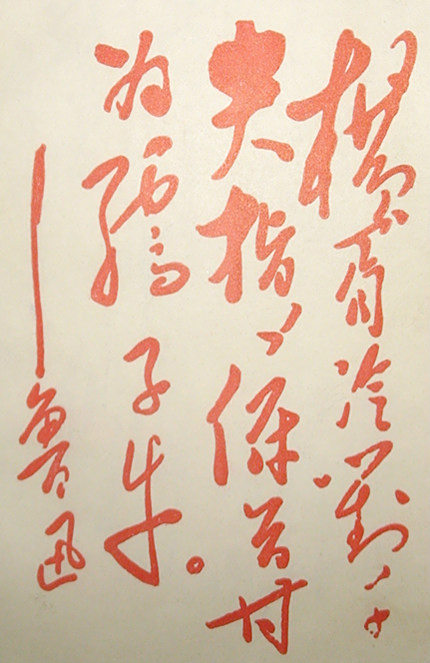 橫眉冷對千
夫指，俯首甘
为孺子牛。
—魯迅